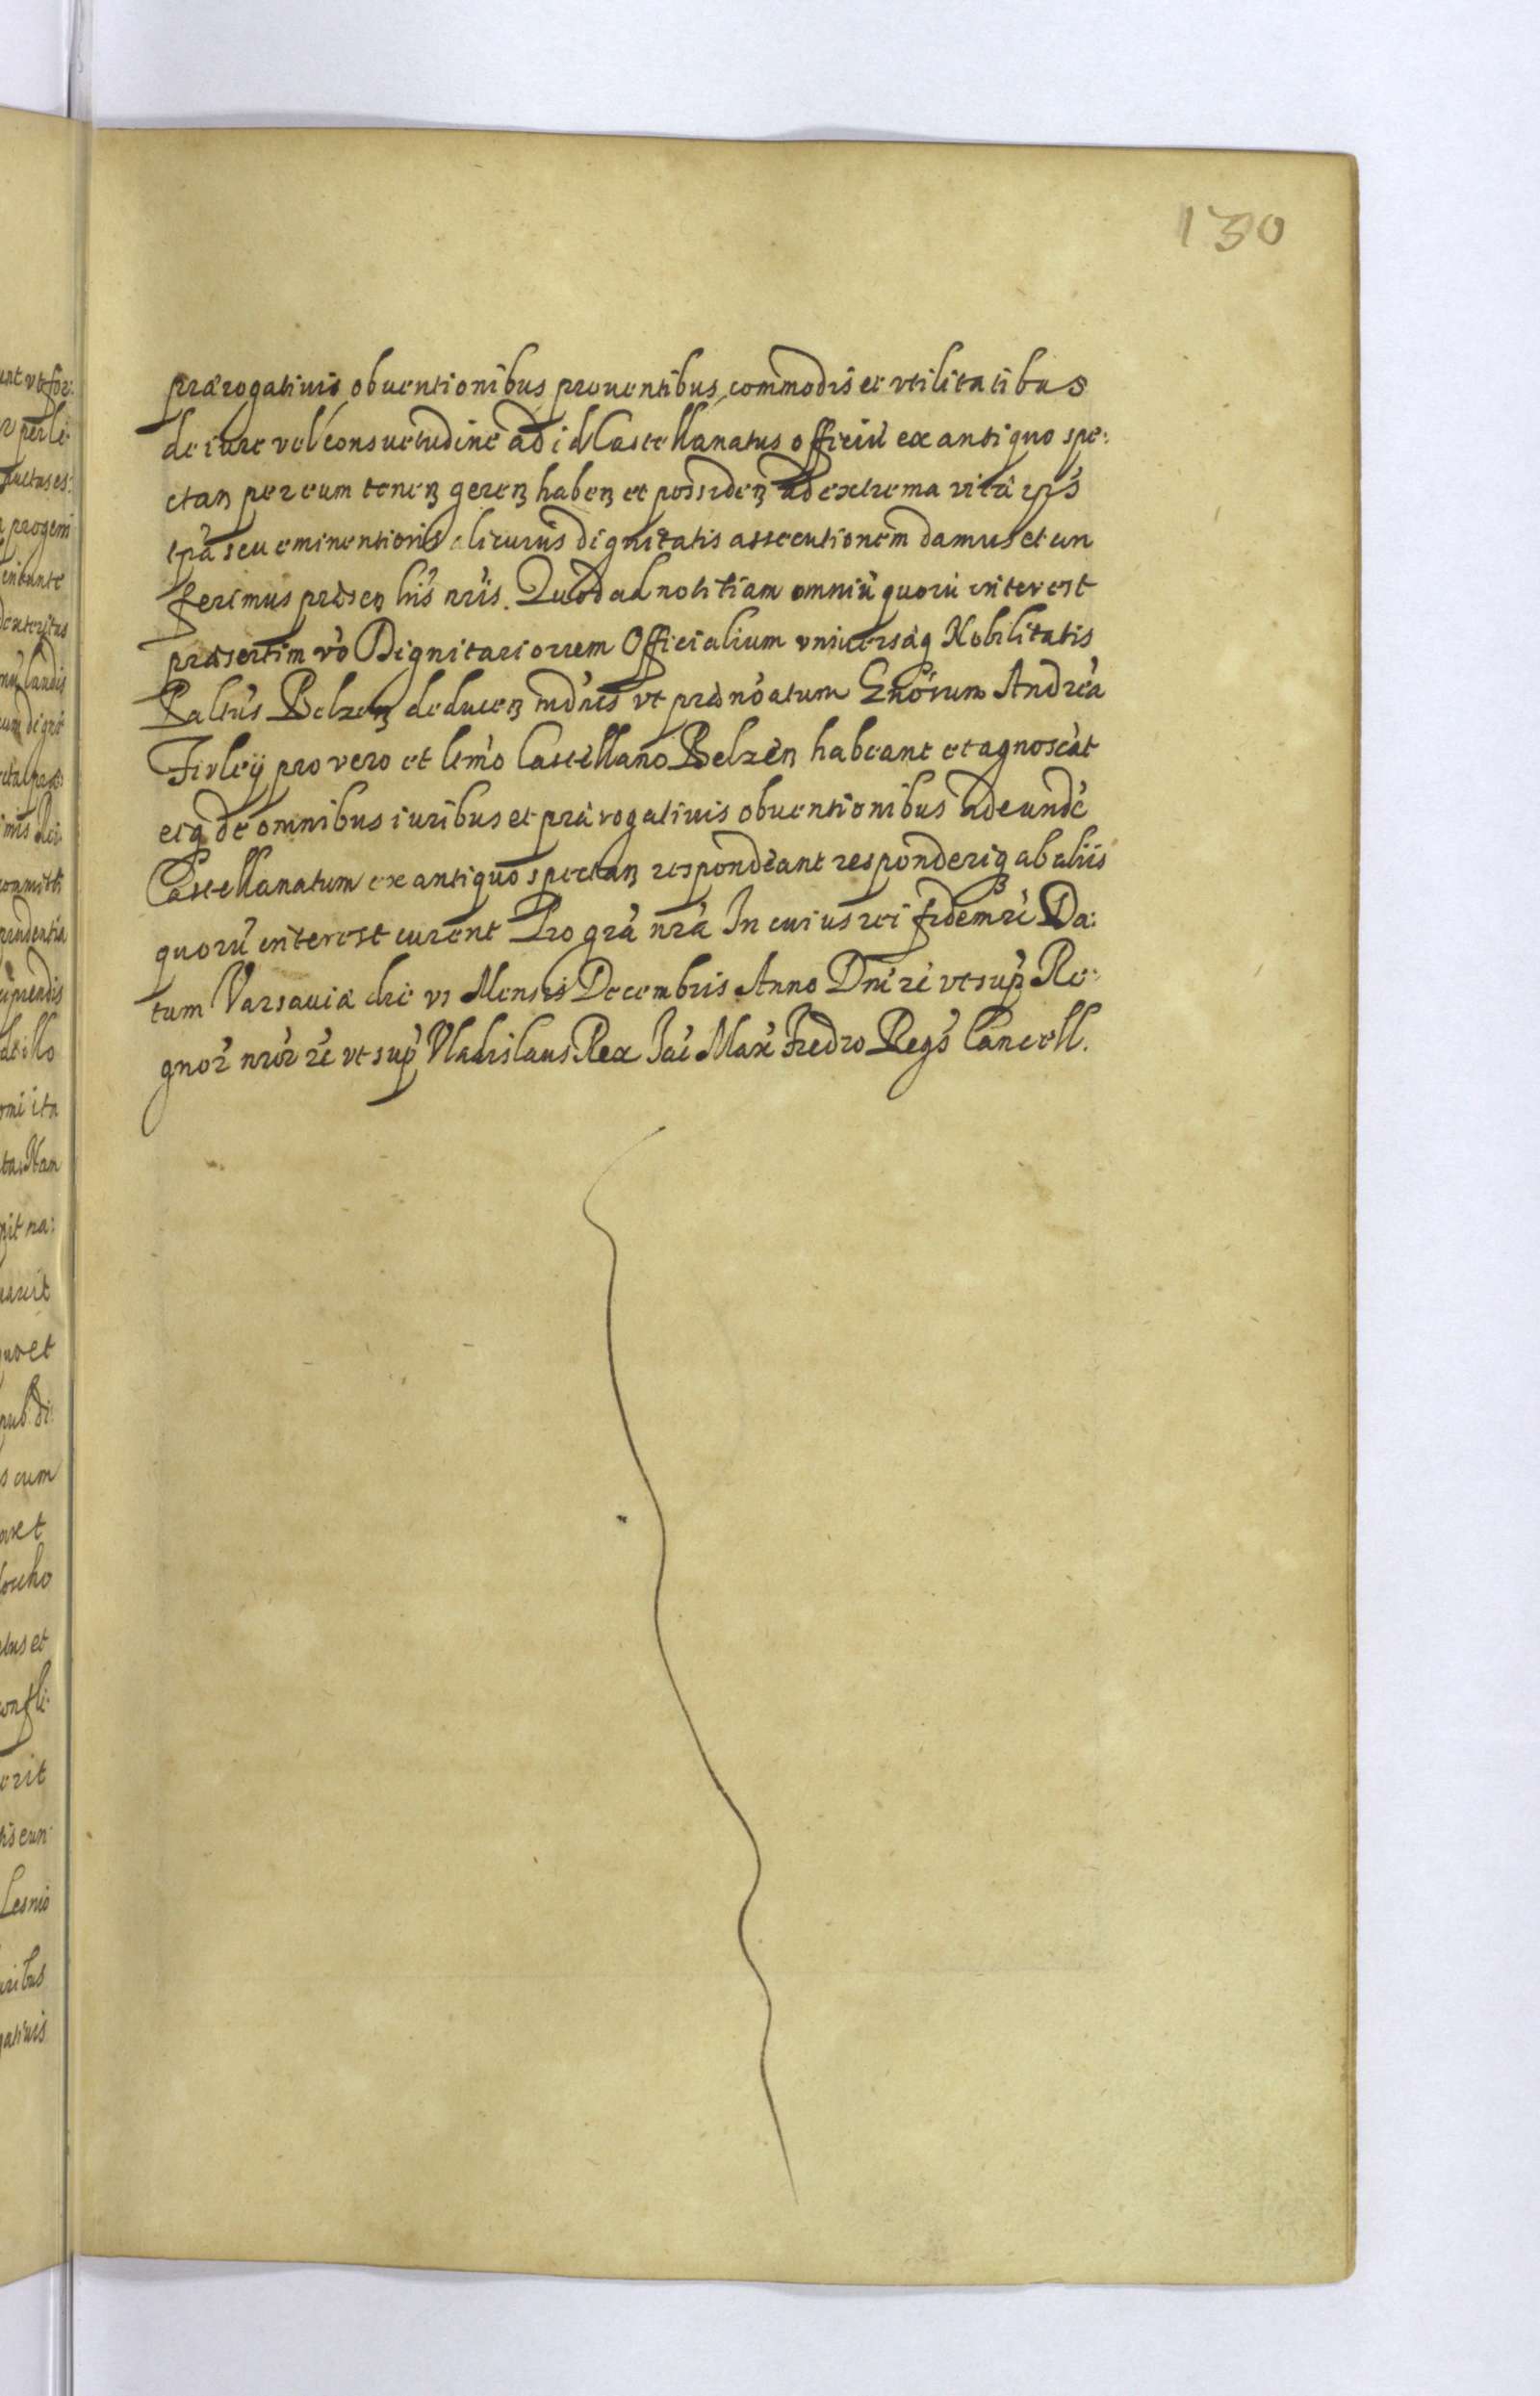 130
prærogativis obventionibus proventibus, commodis et vtilitatibus
de iure vel consuetudine ad id Castellanatus officiũ ex antiquo spe:
ctan per eum tenen geren haben et possiden ad extrema vitæ ips
tpa seu eminentioris alicuius dignitatis assecutionem damus et con
ferimus præsen lris nris. Quod ad notitiam omniũ quorũ interest
præsertim vo Dignitariorum Officialium vniversaq Nobilitatis
Paltus Belzen deducen mdnes vt prænoatum Gnosum Andreã
Firleÿ pro vero et ltmo Castellano Belzen habeant et agnoscãt
eiq de omnibus iuribus et prærogativis obventionibus ad eundẽ
Castellanatum ex antiquo spectan respondeant responderiq ab aliis
quorũ interest curent Pro gra nra In cuius rei fidem rc Da:
tum Varsaviæ die vi Mensis Decembris Anno Dni rc vt sup Re:
gnor nror rc vt sup Vladislaus Rex Jac Max Fredro Regs Cancell.